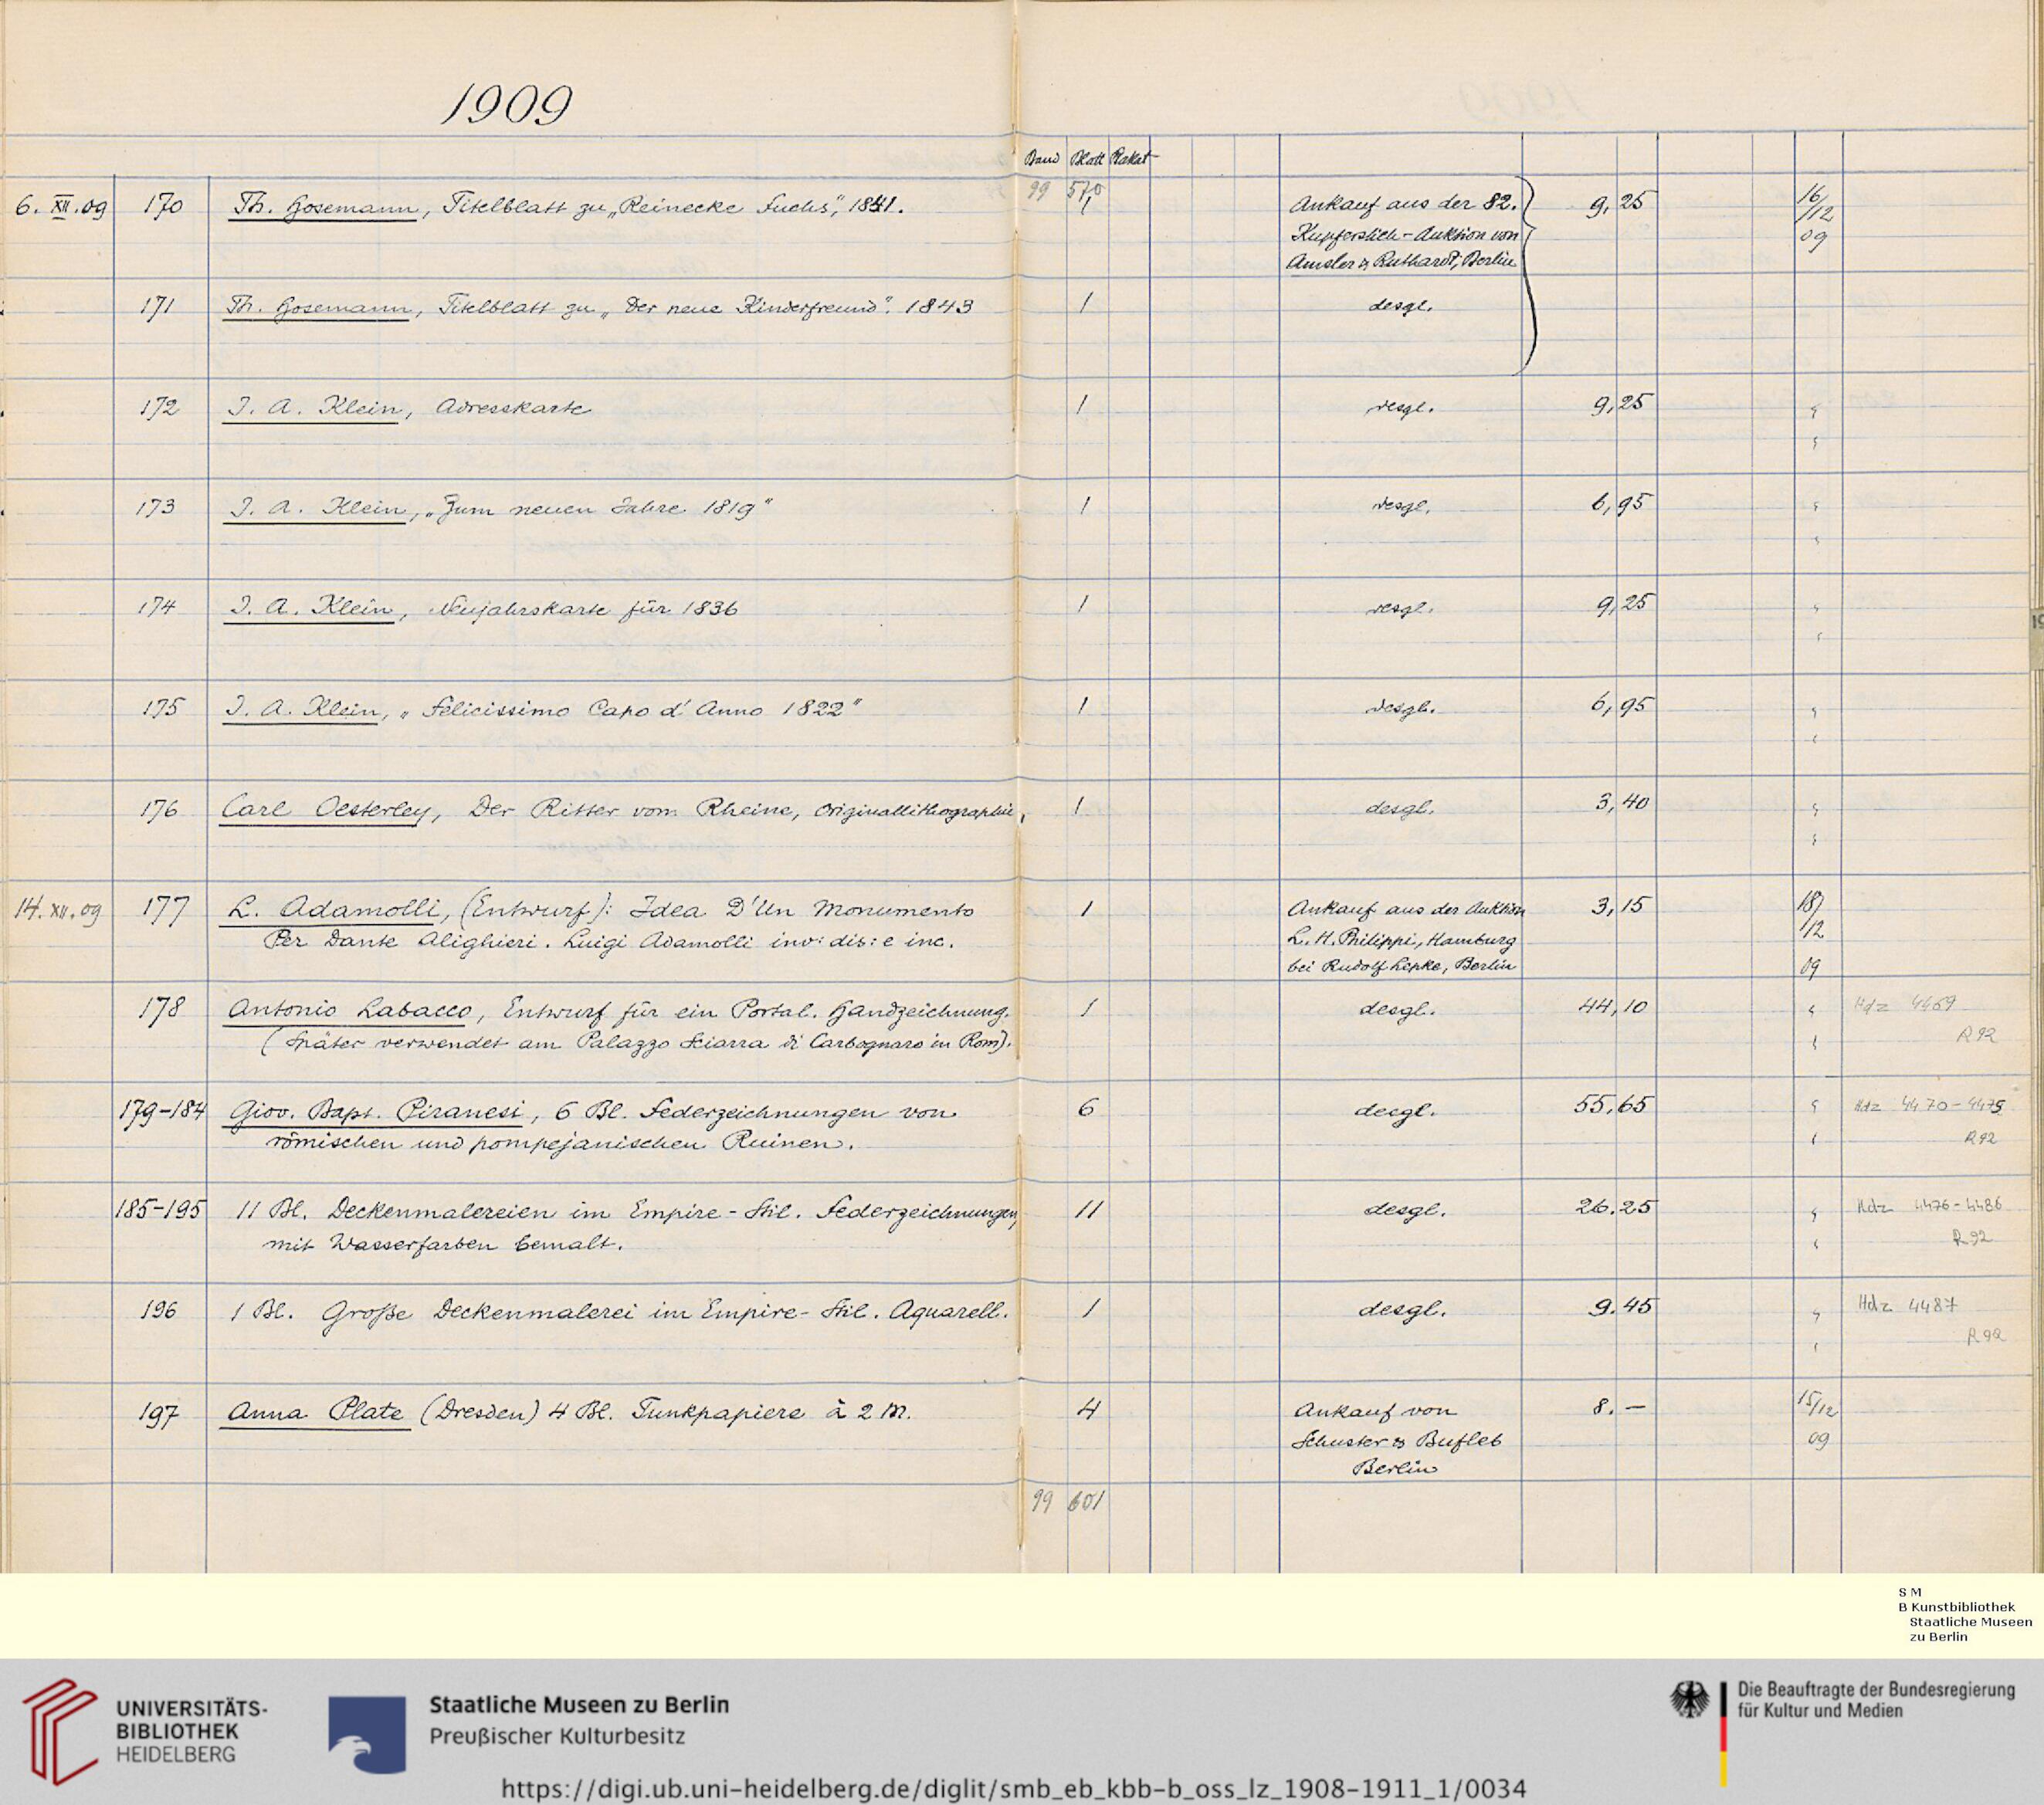 1909
Band Blatt Plakat
99 570
6. XII. 09 170 Th. Hosemann, Titelblatt zu „Reinecke Fuchs", 1841. 1 Ankauf aus der 82. 9,25 16/12 09
Kupferstich-Auktion von
Amsler & Ruthardt, Berlin
171 Th. Hosemann, Titelblatt zu „Der neue Kinderfreund". 1843 1 desgl.
172 J. A. Klein, Adresskarte 1 desgl. 9,25 " "
173 J. A. Klein, „Zum neuen Jahre 1819" 1 desgl. 6,95 " "
174 J. A. Klein, Neujahrskarte für 1836 1 desgl. 9,25 " "
175 J. A. Klein, „Felicissimo Capo d'Anno 1822" 1 desgl. 6,95 " "
176 Carl Oesterley, Der Ritter vom Rheine, Originallithographie, 1 desgl. 3,40 " "
14. XII. 09 177 L. Adamolli, (Entwurf): Idea D'Un Monumento 1 Ankauf aus der Auktion 3,15 18/12 09
Per Dante Alighieri. Luigi Adamolli inv: dis: e inc. L. H. Philippi, Hamburg
bei Rudolf Lepke, Berlin
178 Antonio Labacco, Entwurf für ein Portal. Handzeichnung. 1 desgl. 44,10 " " Hdz 4469
(Später verwendet am Palazzo Sciarra di Carbognaro in Rom). R 92
179-184 Giov. Bapt. Piranesi, 6 Bl. Federzeichnungen von 6 desgl. 55,65 " " Hdz 4470-4475
römischen und pompejanischen Ruinen. R 92
185-195 11 Bl. Deckenmalereien im Empire-Stil. Federzeichnungen 11 desgl. 26.25 " " Hdz 4476-4486
mit Wasserfarben bemalt. R 92
196 1 Bl. Große Deckenmalerei im Empire-Stil. Aquarell. 1 desgl. 9.45 " " Hdz 4487
R 92
197 Anna Plate (Dresden) 4 Bl. Tunkpapiere à 2 M. 4 Ankauf von 8.— 15/12 09
Schuster & Bufleb
Berlin
99 601
S M
B Kunstbibliothek
Staatliche Museen
zu Berlin
UNIVERSITÄTS-
BIBLIOTHEK
HEIDELBERG
Staatliche Museen zu Berlin
Preußischer Kulturbesitz
Die Beauftragte der Bundesregierung
für Kultur und Medien
https://digi.ub.uni-heidelberg.de/diglit/smb_eb_kbb-b_oss_lz_1908-1911_1/0034